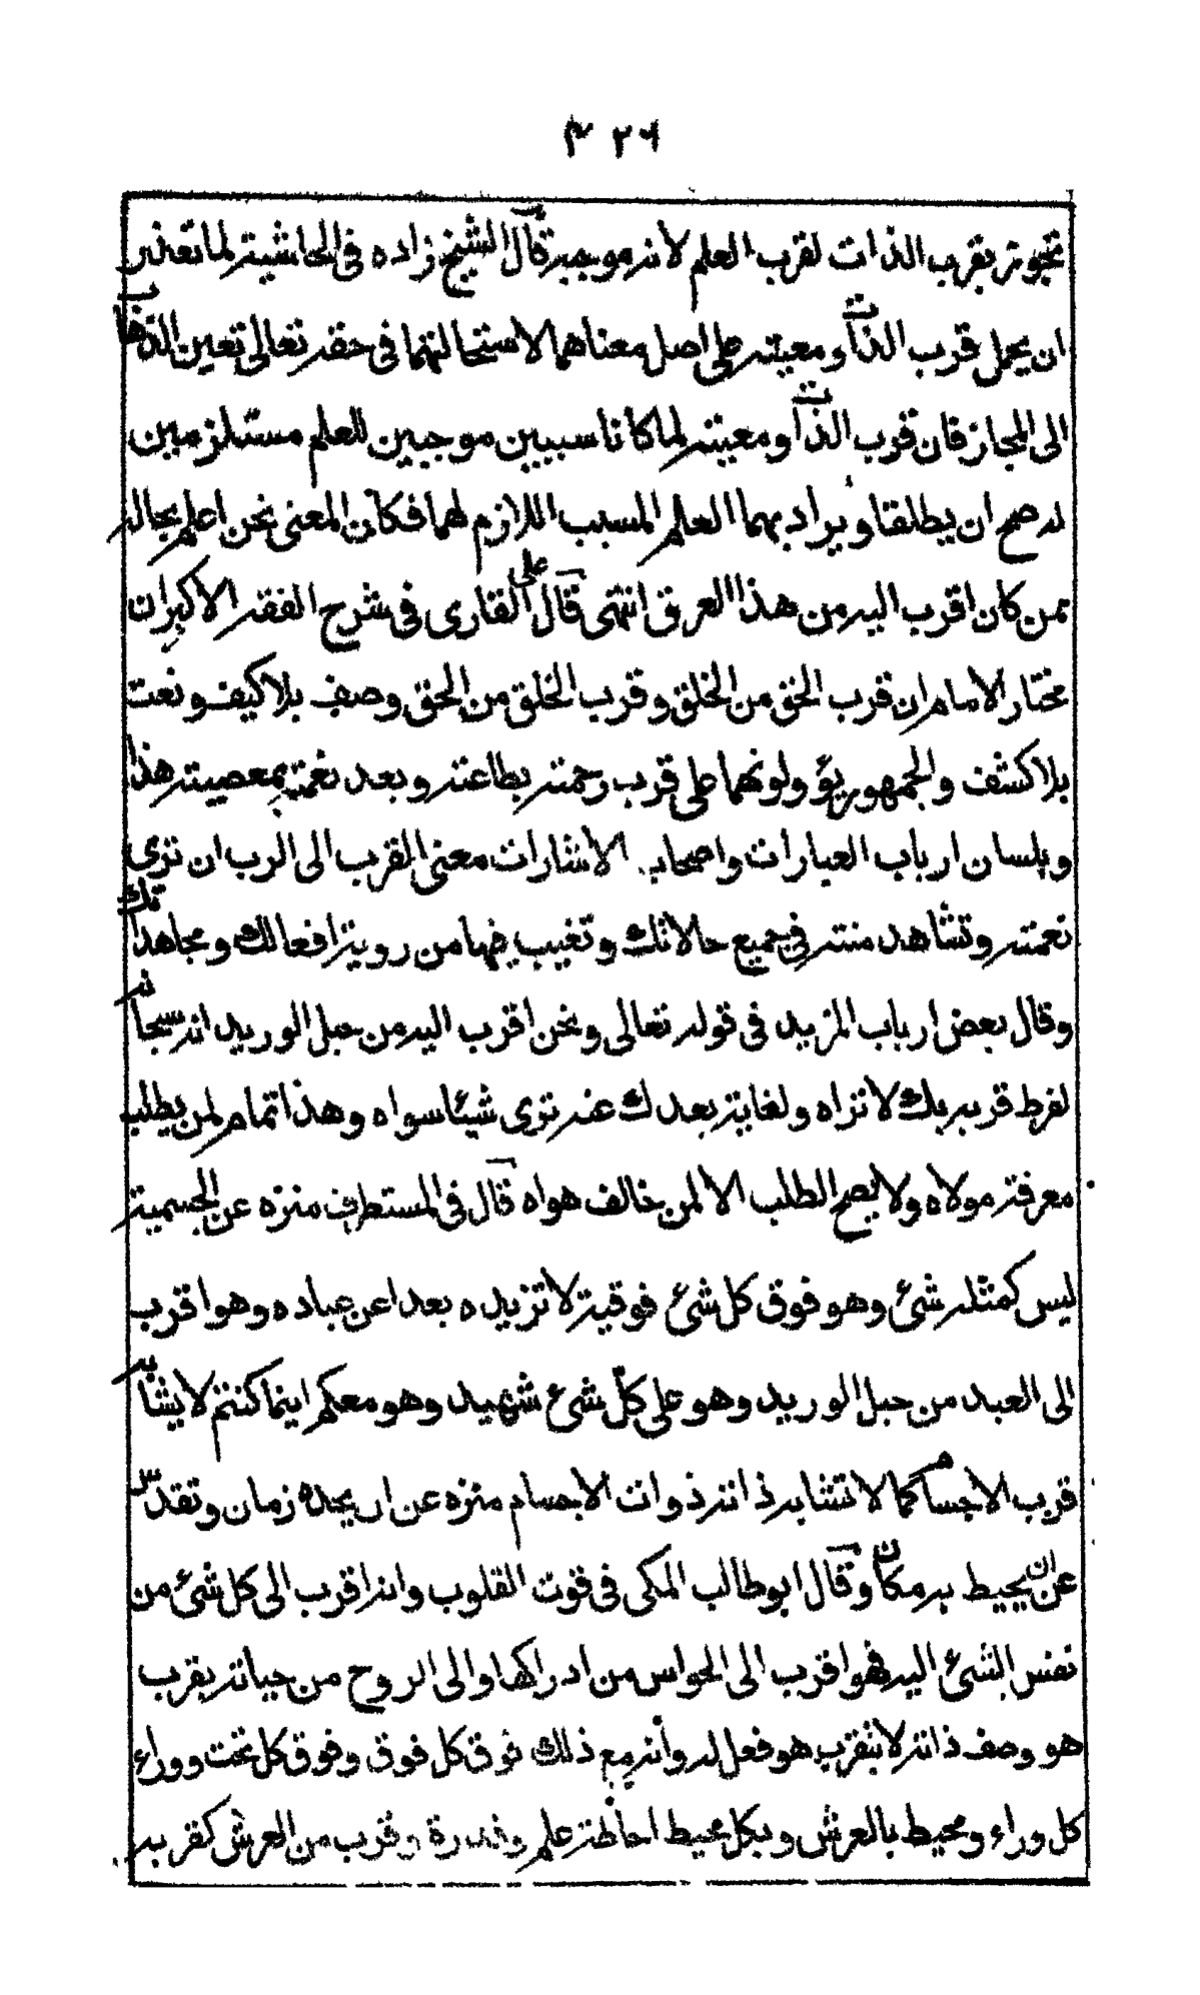 ٣٢٦
تجوز بقرب الذات لقرب العلم لانه موجبه قال الشيخ زاده فى الحاشية لما تعذر
ان يحمل قرب الذات ومعيته على اصل معناهما لاستحالتهما فى حقه تعالى تعين الذهاب
الى المجاز فان قرب الذات ومعيته لما كانا سببين موجبين للعلم مستلزمين
له صح ان يطلقا ويراد بهما العلم المسبب اللازم لهما فكان المعنى نحن اعلم بحاله
ممن كان اقرب اليه من هذا العرق انتهى قال على القارى فى شرح الفقه الاكبر ان
مختار الامام ان قرب الحق من الخلق وقرب الخلق من الحق وصف بلا كيف ونعت
بلا كشف والجمهور يؤولونهما على قرب رحمته بطاعته وبعد نعمته بمعصيته هذا
وبلسان ارباب العبارات واصحاب الاشارات معنى القرب الى الرب ان ترى
نعمته وتشاهد منته فى جميع حالاتك وتغيب فيها من روية افعالك ومجاهداتك
وقال بعض ارباب المزيد فى قوله تعالى ونحن اقرب اليه من حبل الوريد انه سبحانه
لفرط قربه بك لا تراه ولغاية بعدك عنه ترى شيئا سواه وهذا تمام لمن يطلب
معرفة مولاه ولا يصح الطلب الا لمن خالف هواه قال فى المستطرف منزه عن الجسمية
ليس كمثله شئ وهو فوق كل شئ فوقية لا تزيده بعدا عن عباده وهو اقرب
الى العبد من حبل الوريد وهو على كل شئ شهيد وهو معكم اينما كنتم لا يشابه
قرب الاجسام كما لا تشابه ذاته ذوات الاجسام منزه عن ان يحده زمان وتقدس
عن ان يحيط به مكان وقال ابو طالب المكى فى قوت القلوب وانه اقرب الى كل شئ من
نفس الشئ اليه فهو اقرب الى الحواس من ادراكها والى الروح من حياته بقرب
هو وصف ذاته لا بتقرب هو فعل له وأنه مع ذلك فوق كل فوق وفوق كل تحت ووراء
كل وراء ومحيط بالعرش وبكل محيط احاطة علم وقدرة وقرب من العرش كقربه